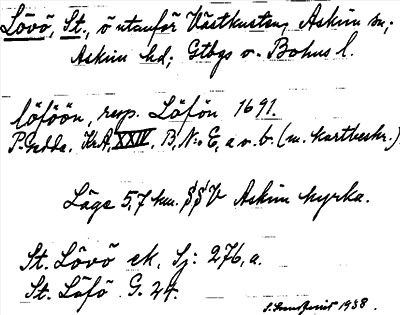 Lövö, St., ö utanför Västkusten, Askim sn;
Askim hd; Gtbgs o. Bohus l.
löföön, resp. Löfön 1691.
P. Gedda. KrA, XXIV, B, N:o 6, a o. b. (m. kartbeskr.)
Läge 5,7 km. SSV Askim kyrka.
St. Lövö ek. Sj: 276, a.
St. Löfö G. 24.
1938.